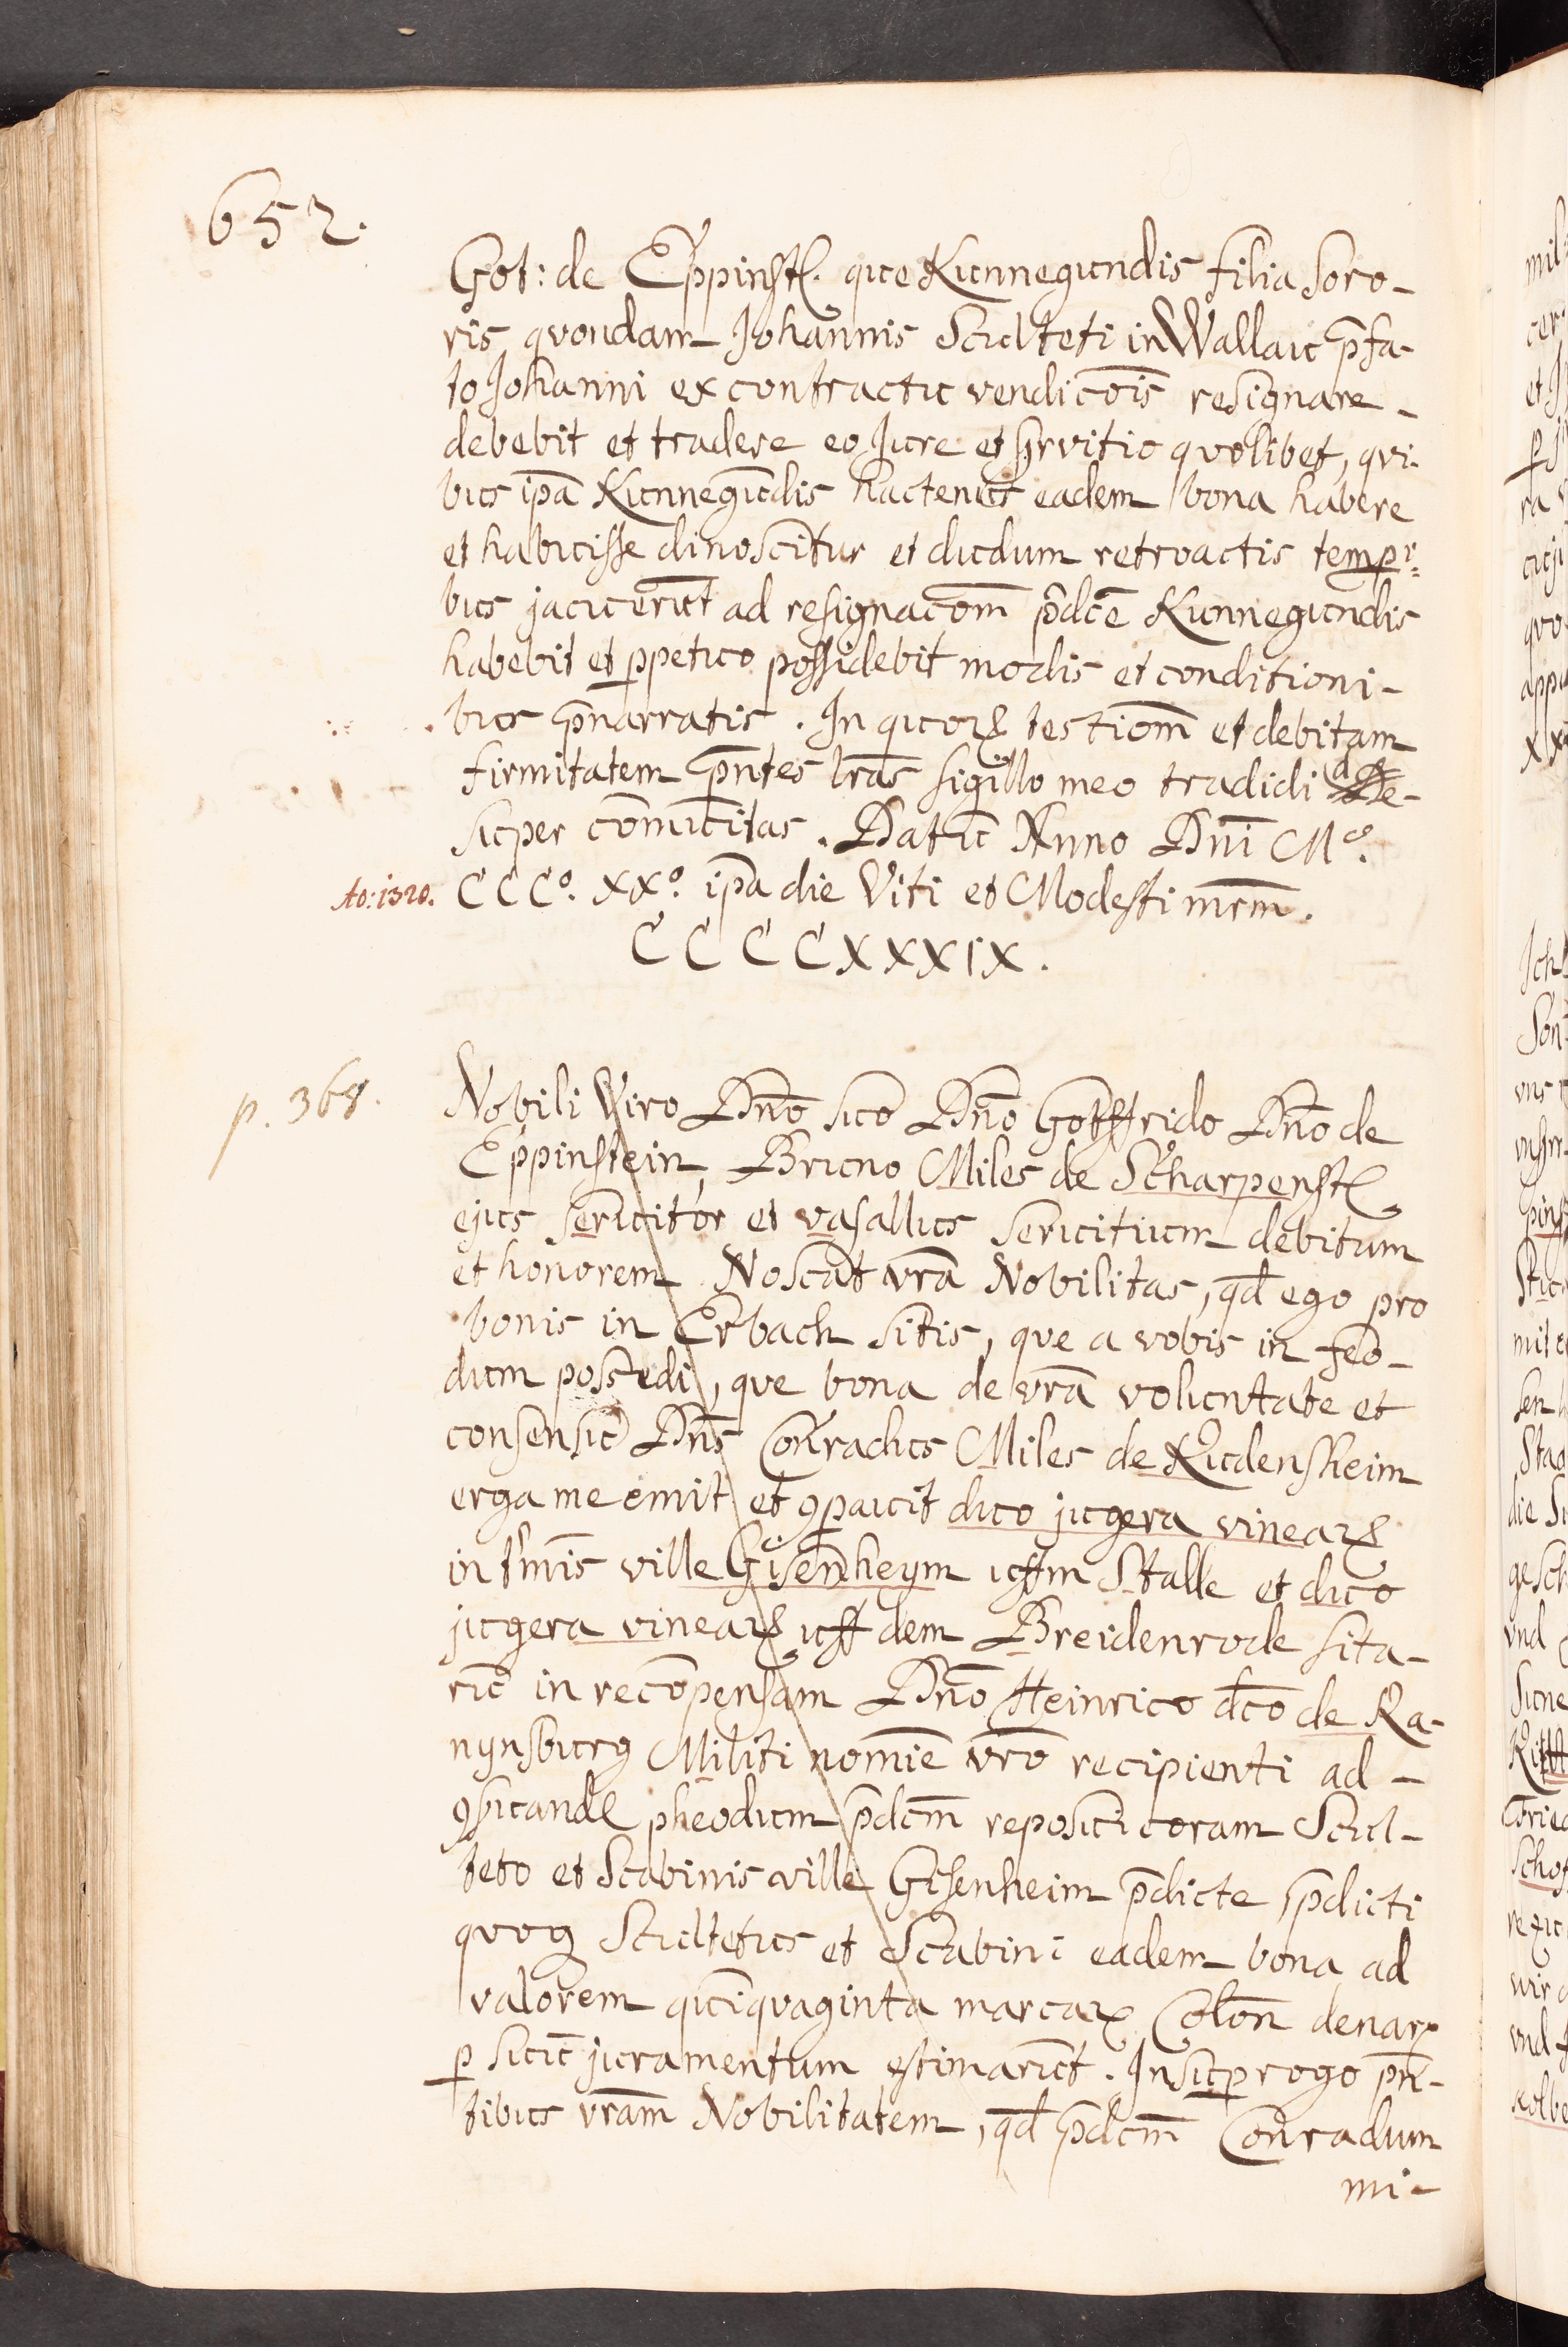 652.
Got: de Eppinst. que Kunnegundis filia soro-
ris quondam Johannis Sculteti in Wallau p̄fa-
to Johanni ex contractu vendicōis resignare
debebit et tradere eo Jure et servitio quolibet, qui-
bus ipā Kunnegūdis hactenus eadem bona habere
et habuisse dinoscitur et dudum retroactis tempr-
bus jacuerūt ad resignacōm p̄dcē Kunnegundis
habebit et ppetuo possidebit modis et conditioni-
bus p̄narratis. In quoꝝ testiom̄ et debitam
firmitatem p̄ntes lrās sigillo meo tradidi de-
super cōmūitas. Datū Anno Dnī Mº.
Ao: 1320. CCCº. XXº. ipā die Viti et Modesti mr̄m.
CCCCXXXIX.
p. 368.
Nobili Viro Dnō suo Dnō Gotffrido Dnō de
Eppinstein, Bruno Miles de Scharpenst.
ejus servitor et vasallus servitium debitum
et honorem. Noscat vrā Nobilitas, qd ego pro
bonis in Erbach sitis, que a vobis in feo-
dum possedi, que bona de vrā voluntate et
consensu Dn̄s Conradus Miles de Rudensheim
erga me emit et ꝯpauit duo jugera vineaꝝ
in t'mīs ville Gisenheym uffm Stalle et duo
jugera vineaꝝ uff dem Breidenrode sita-
rū in recōpensam Dnō Heinrico dc̄o de Ra-
nynsburg Militi nomīe vrō recipienti ad
ꝯsuand pheodum p̄dcm̄ reposui coram Scul-
teto et Scabinis ville Gisenheim p̄dicte, p̄dicti
quoq Scultetus et Scabini eadem bona ad
valorem quīquaginta marcaꝝ Colon̄ denarꝝ
p suū juramentum estimarūt. Insup rogo pn̄-
tibus vrām Nobilitatem, qd p̄dcm̄ Conradum
mi-